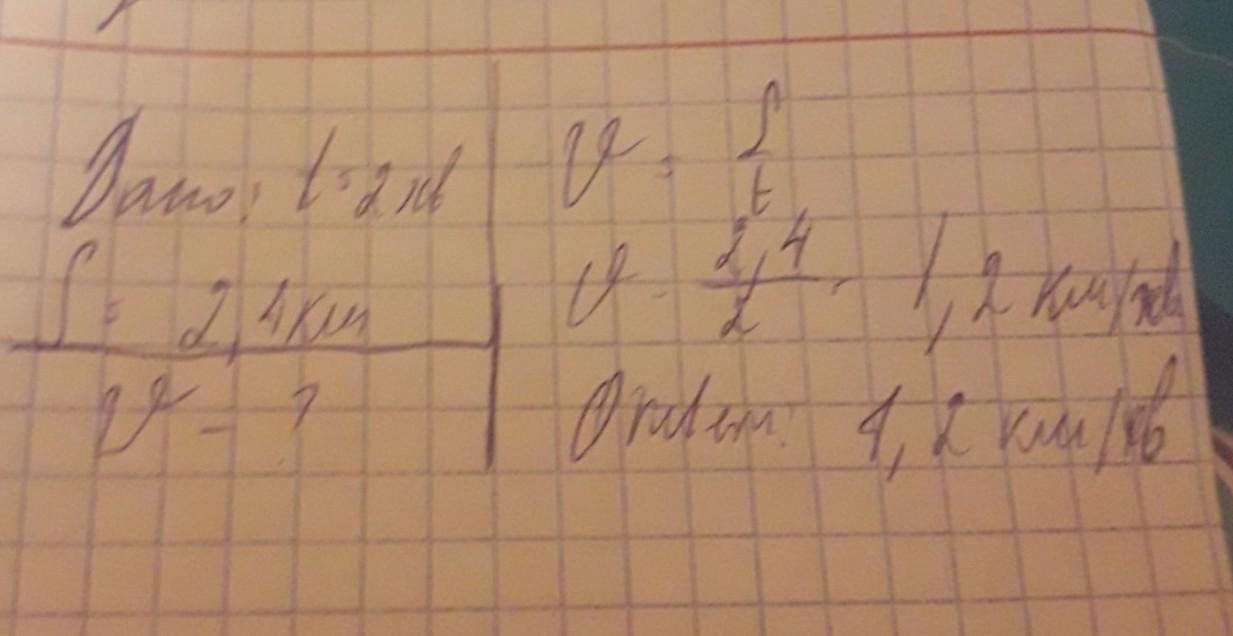 Дано: t = 2 хв
S = 2,4 км
V - ?
V = S/t
V = 2,4/2 = 1,2 км/хв
Ответ: 1,2 км/хв